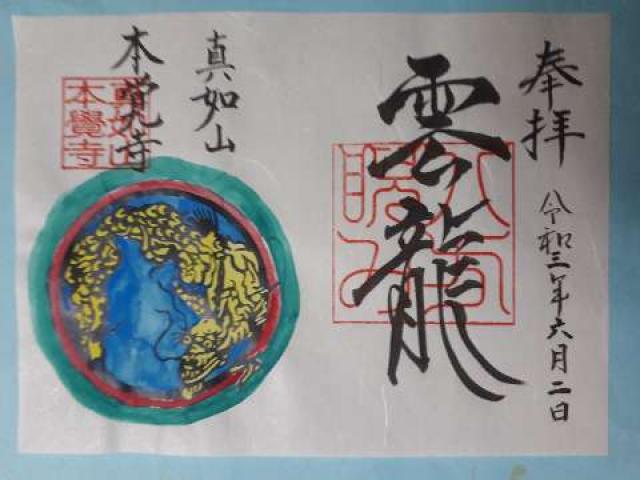 奉拝
令和三年六月二日
雲龍
真如山
本覚寺
真如山
本覺寺